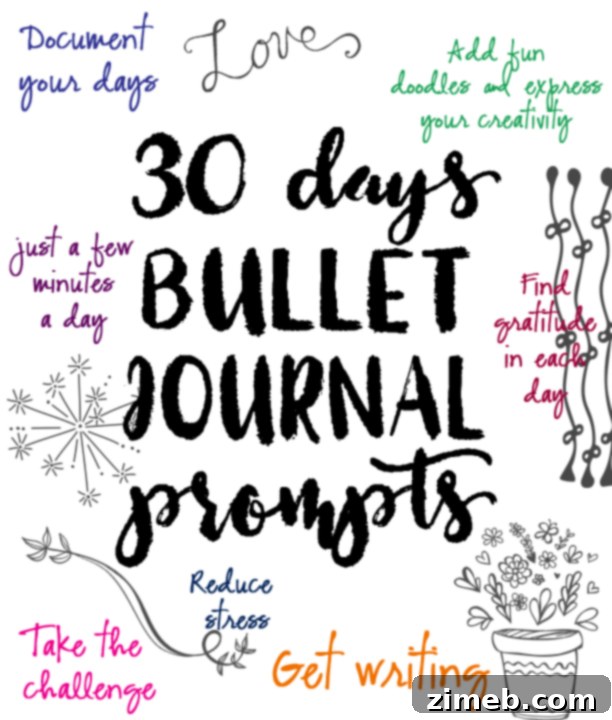 Document
your days
Love
Add fun
doodles and express
your creativity
30 days
BULLET
JOURNAL
prompts
just a few
minutes
a day
Find
gratitude
in each
day
Reduce
stress
Take the
challenge
Get writing
zimeb.com